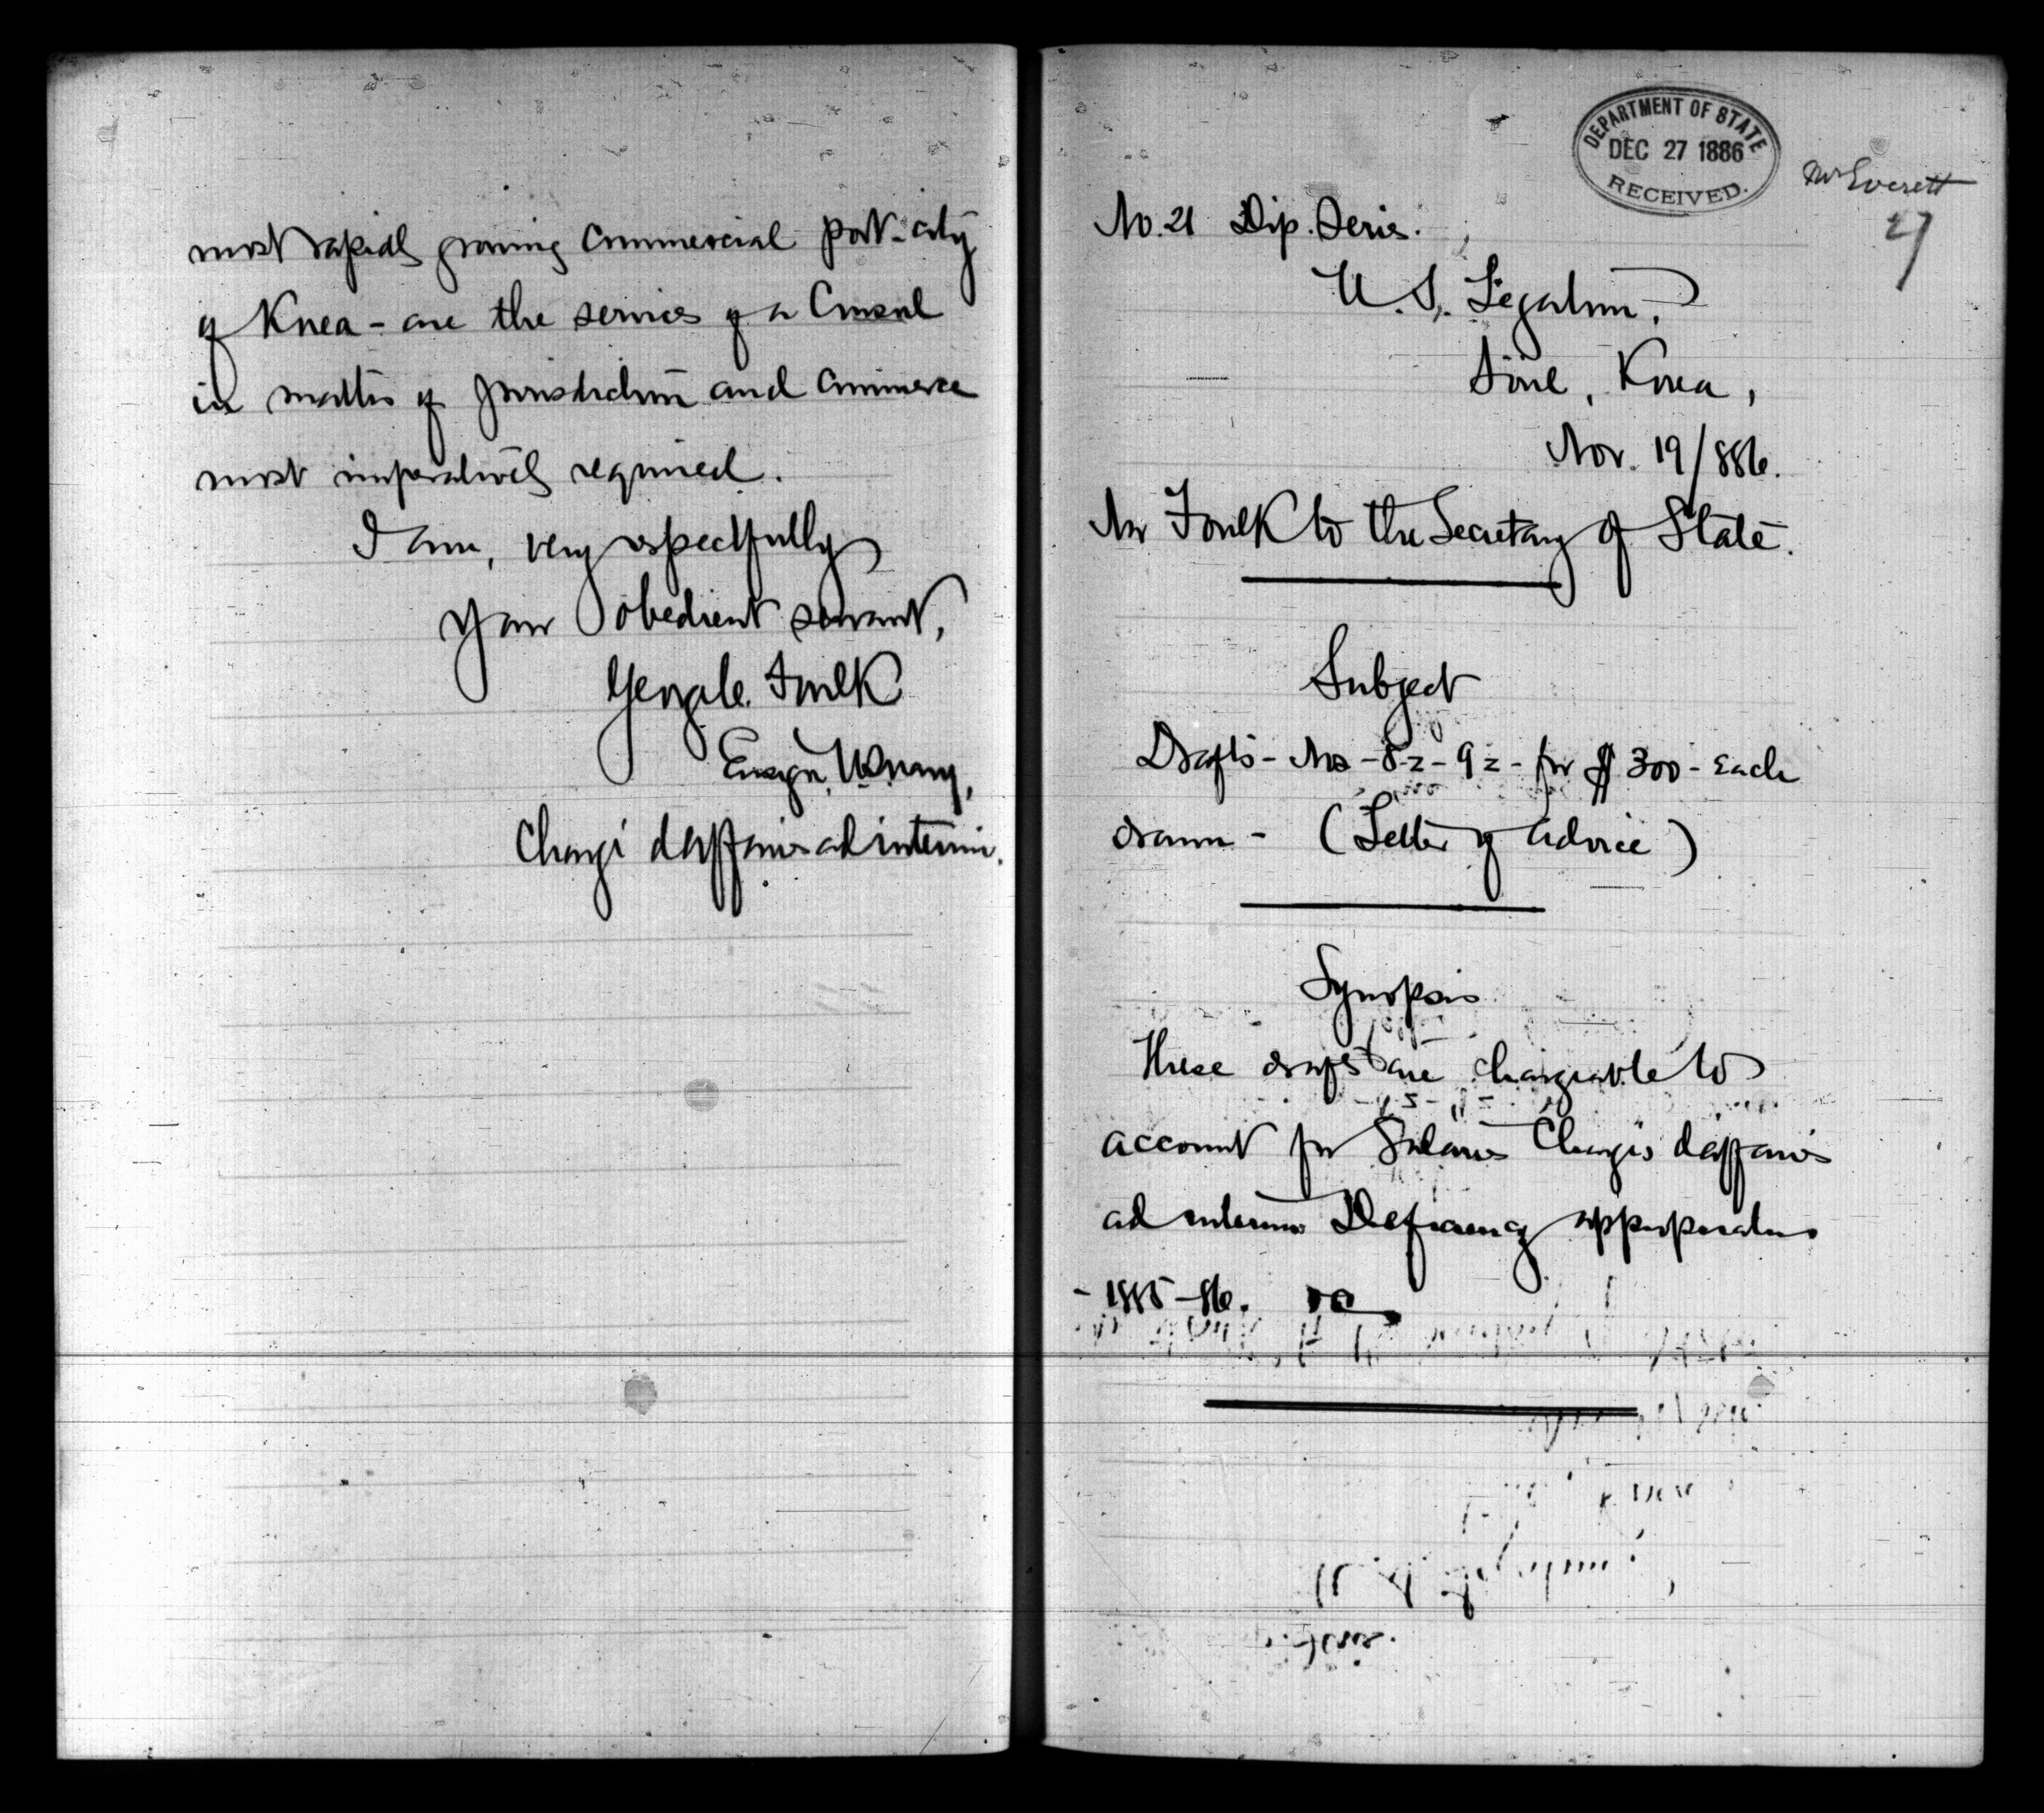 most rapidly growing commercial port-city
of Korea - are the services of a Consul
in matters of jurisdiction and commerce
most imperatively required.
I am, very respectfully
Your obedient servant,
George C. Foulk
Ensign, U.S. Navy,
Chargé d'affaires ad interim.
DEPARTMENT OF STATE
DEC 27 1886
RECEIVED.
Mr Everett
27
No. 21 Dip. Series.
U.S. Legation,
Söul, Korea,
Nov. 19/886.
Mr Foulk to the Secretary of State.
Subject
Drafts - Nos - 8z - 9z - for $300 - Each
drawn - (Letter of advice)
Synopsis
These drafts are chargeable to
account for Salaries Chargés d'affaires
ad interim Deficiency appropriation
- 1885-86.